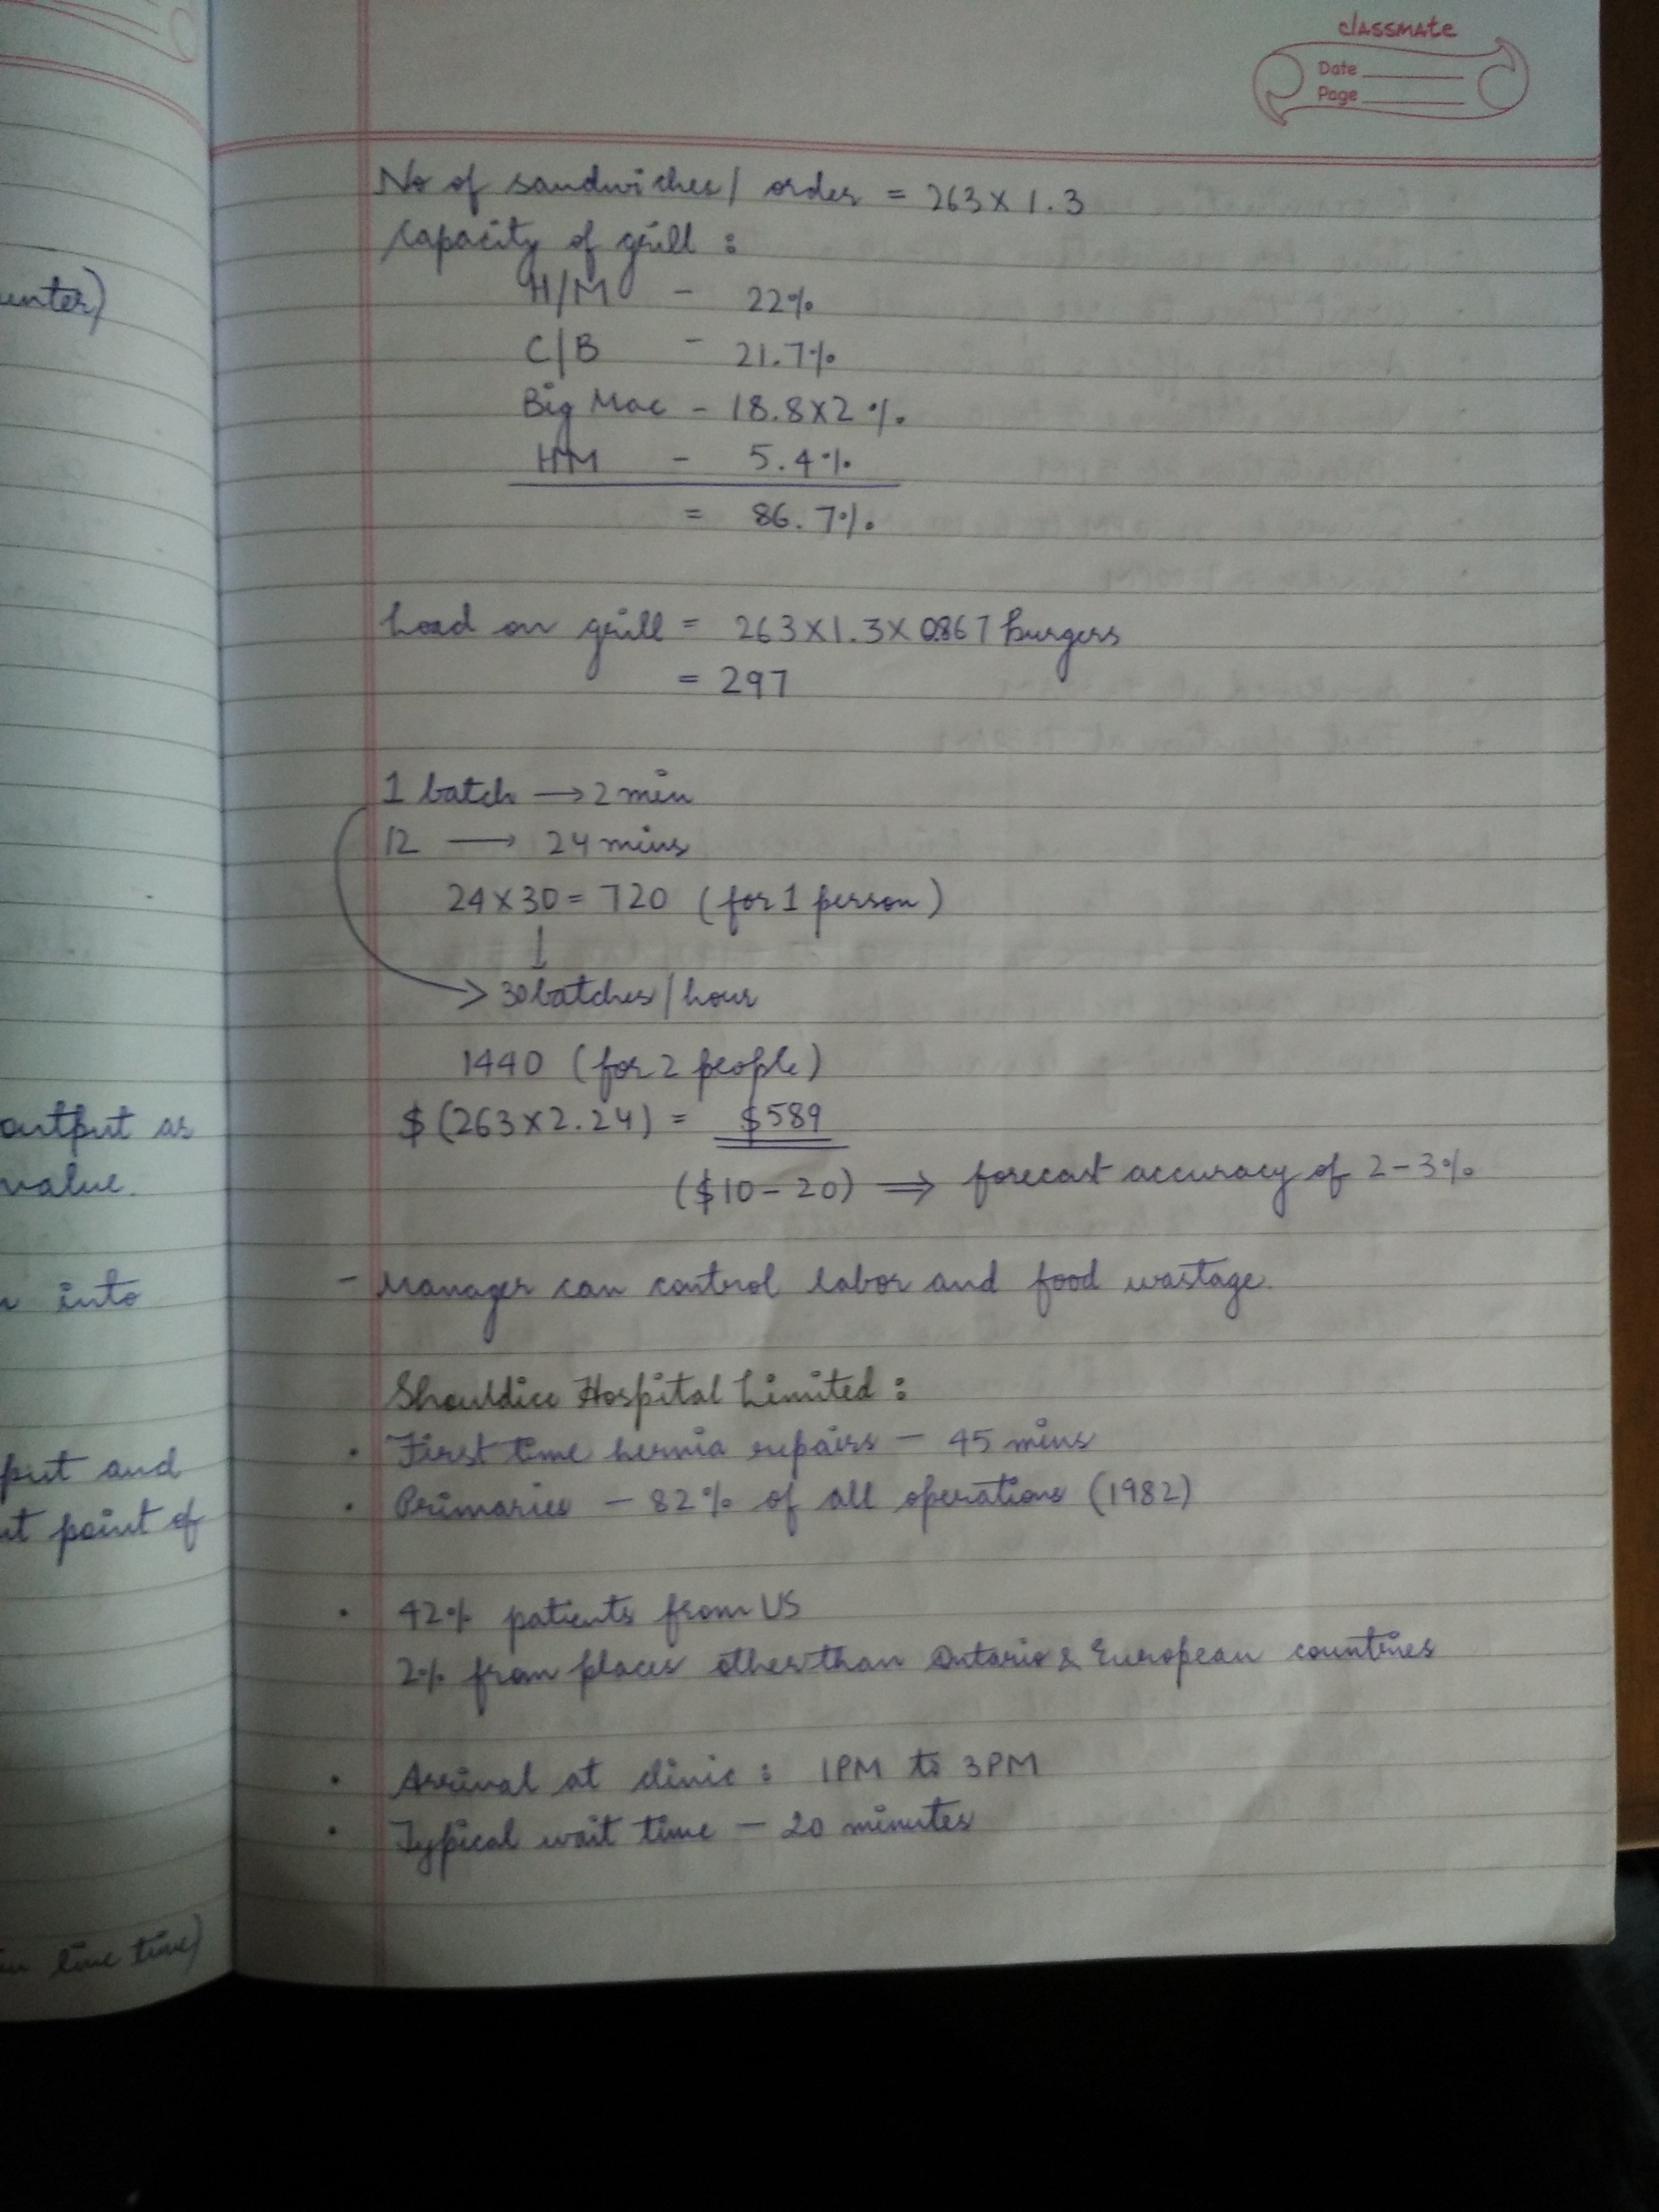 classmate
Date
Page
No of sandwiches/ order = 263 x 1.3
Capacity of grill :
H/M - 22%
C/B - 21.7%
Big Mac - 18.8x2 %.
HM - 5.4%
= 86.7%
Load on grill = 263x1.3x0.867 burgers
= 297
1 batch → 2 min
12 → 24 mins
24 x 30 = 720 (for 1 person)
↓
→ 30 batches / hour
1440 (for 2 people)
$ (263x2.24) = $589
($10-20) ⇒ forecast accuracy of 2-3%
- Manager can control labor and food wastage.
Shouldice Hospital Limited :
• First time hernia repairs - 45 mins
• Primaries - 82% of all operations (1982)
• 42% patients from US
2% from places other than Ontario & European countries
• Arrival at clinic : 1PM to 3PM
• Typical wait time - 20 minutes
unter)
output as
value.
into
put and
point of
line time)